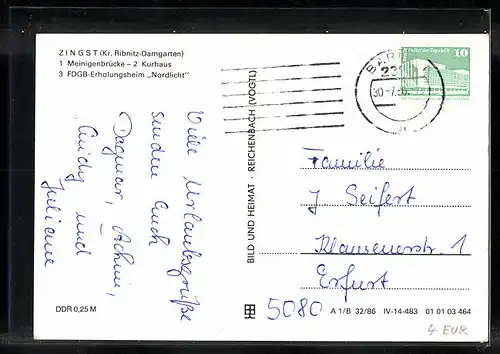 ZINGST (Kr. Ribnitz-Damgarten)
1 Meinigenbrücke – 2 Kurhaus
3 FDGB-Erholungsheim „Nordlicht"
Viele Urlaubsgrüße
senden Euch
Dagmar, Achim,
Guidy und
Juliane
DDR 0,25 M
BILD UND HEIMAT · REICHENBACH (VOGTL)
BAR
23
30.-7.
a
Palast der Republik
10
Familie
J. Seifert
Klausenerstr. 1
Erfurt
5080
A 1/B 32/86 IV-14-483 01 01 03 464
4 EUR